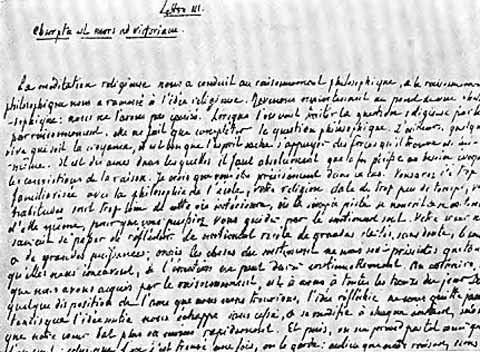 Lettre III.
absorpta est mors ad victoriam.
La meditation religieuse nous a conduit au raisonnement philosophique, et le raisonnement
philosophique nous a ramené à l'idée religieuse. Revenons maintenant au point de vue philo-
-sophique: nous ne l'avons pas épuisé. Lorsque l'on veut traiter la question religieuse par le
raisonnement, on ne fait que completer la question philosophique. D'ailleurs, quelque
vive que soit la croyance, il est bon que l'esprit sache s'appuyer des forces qu'il trouve en lui-
même. Il est des ames dans lesquelles il faut absolument que la foi puisse au besoin
les convictions de la raison. Je crois que vous êtes précisément dans ce cas. Vous avez été trop
familiarisée avec la philosophie de l'école, votre religion date de trop peu de temps, vos
habitudes sont trop loin de cette vie intérieure, où la simple piété se nourrit et se contente
d'elle même, pour que vous puissiez vous guider par le sentiment seul. Votre coeur ne
saurait se passer de réflexion. Le sentiment recèle de grandes clartés, sans doute, le coeur
a de grandes puissances; mais les choses du sentiment ne nous sont présentes que tant
qu'elles nous émeuvent, et l'émotion ne peut durer continuellement. Au contraire, ce
que nous avons acquis par le raisonnement est à nous à toutes les heures du jour. Dans
quelque disposition de l'ame que nous nous trouvions, l'idée réfléchie ne nous quitte pas,
tandis que l'idée sentie nous échappe sans cesse, et se modifie à chaque instant, selon
que notre coeur bat plus ou moins rapidement. Et puis, on ne prend pas tel coeur qu'on
veut: celui que l'on s'est trouvé une fois, on le garde: au lieu que notre raison, nous